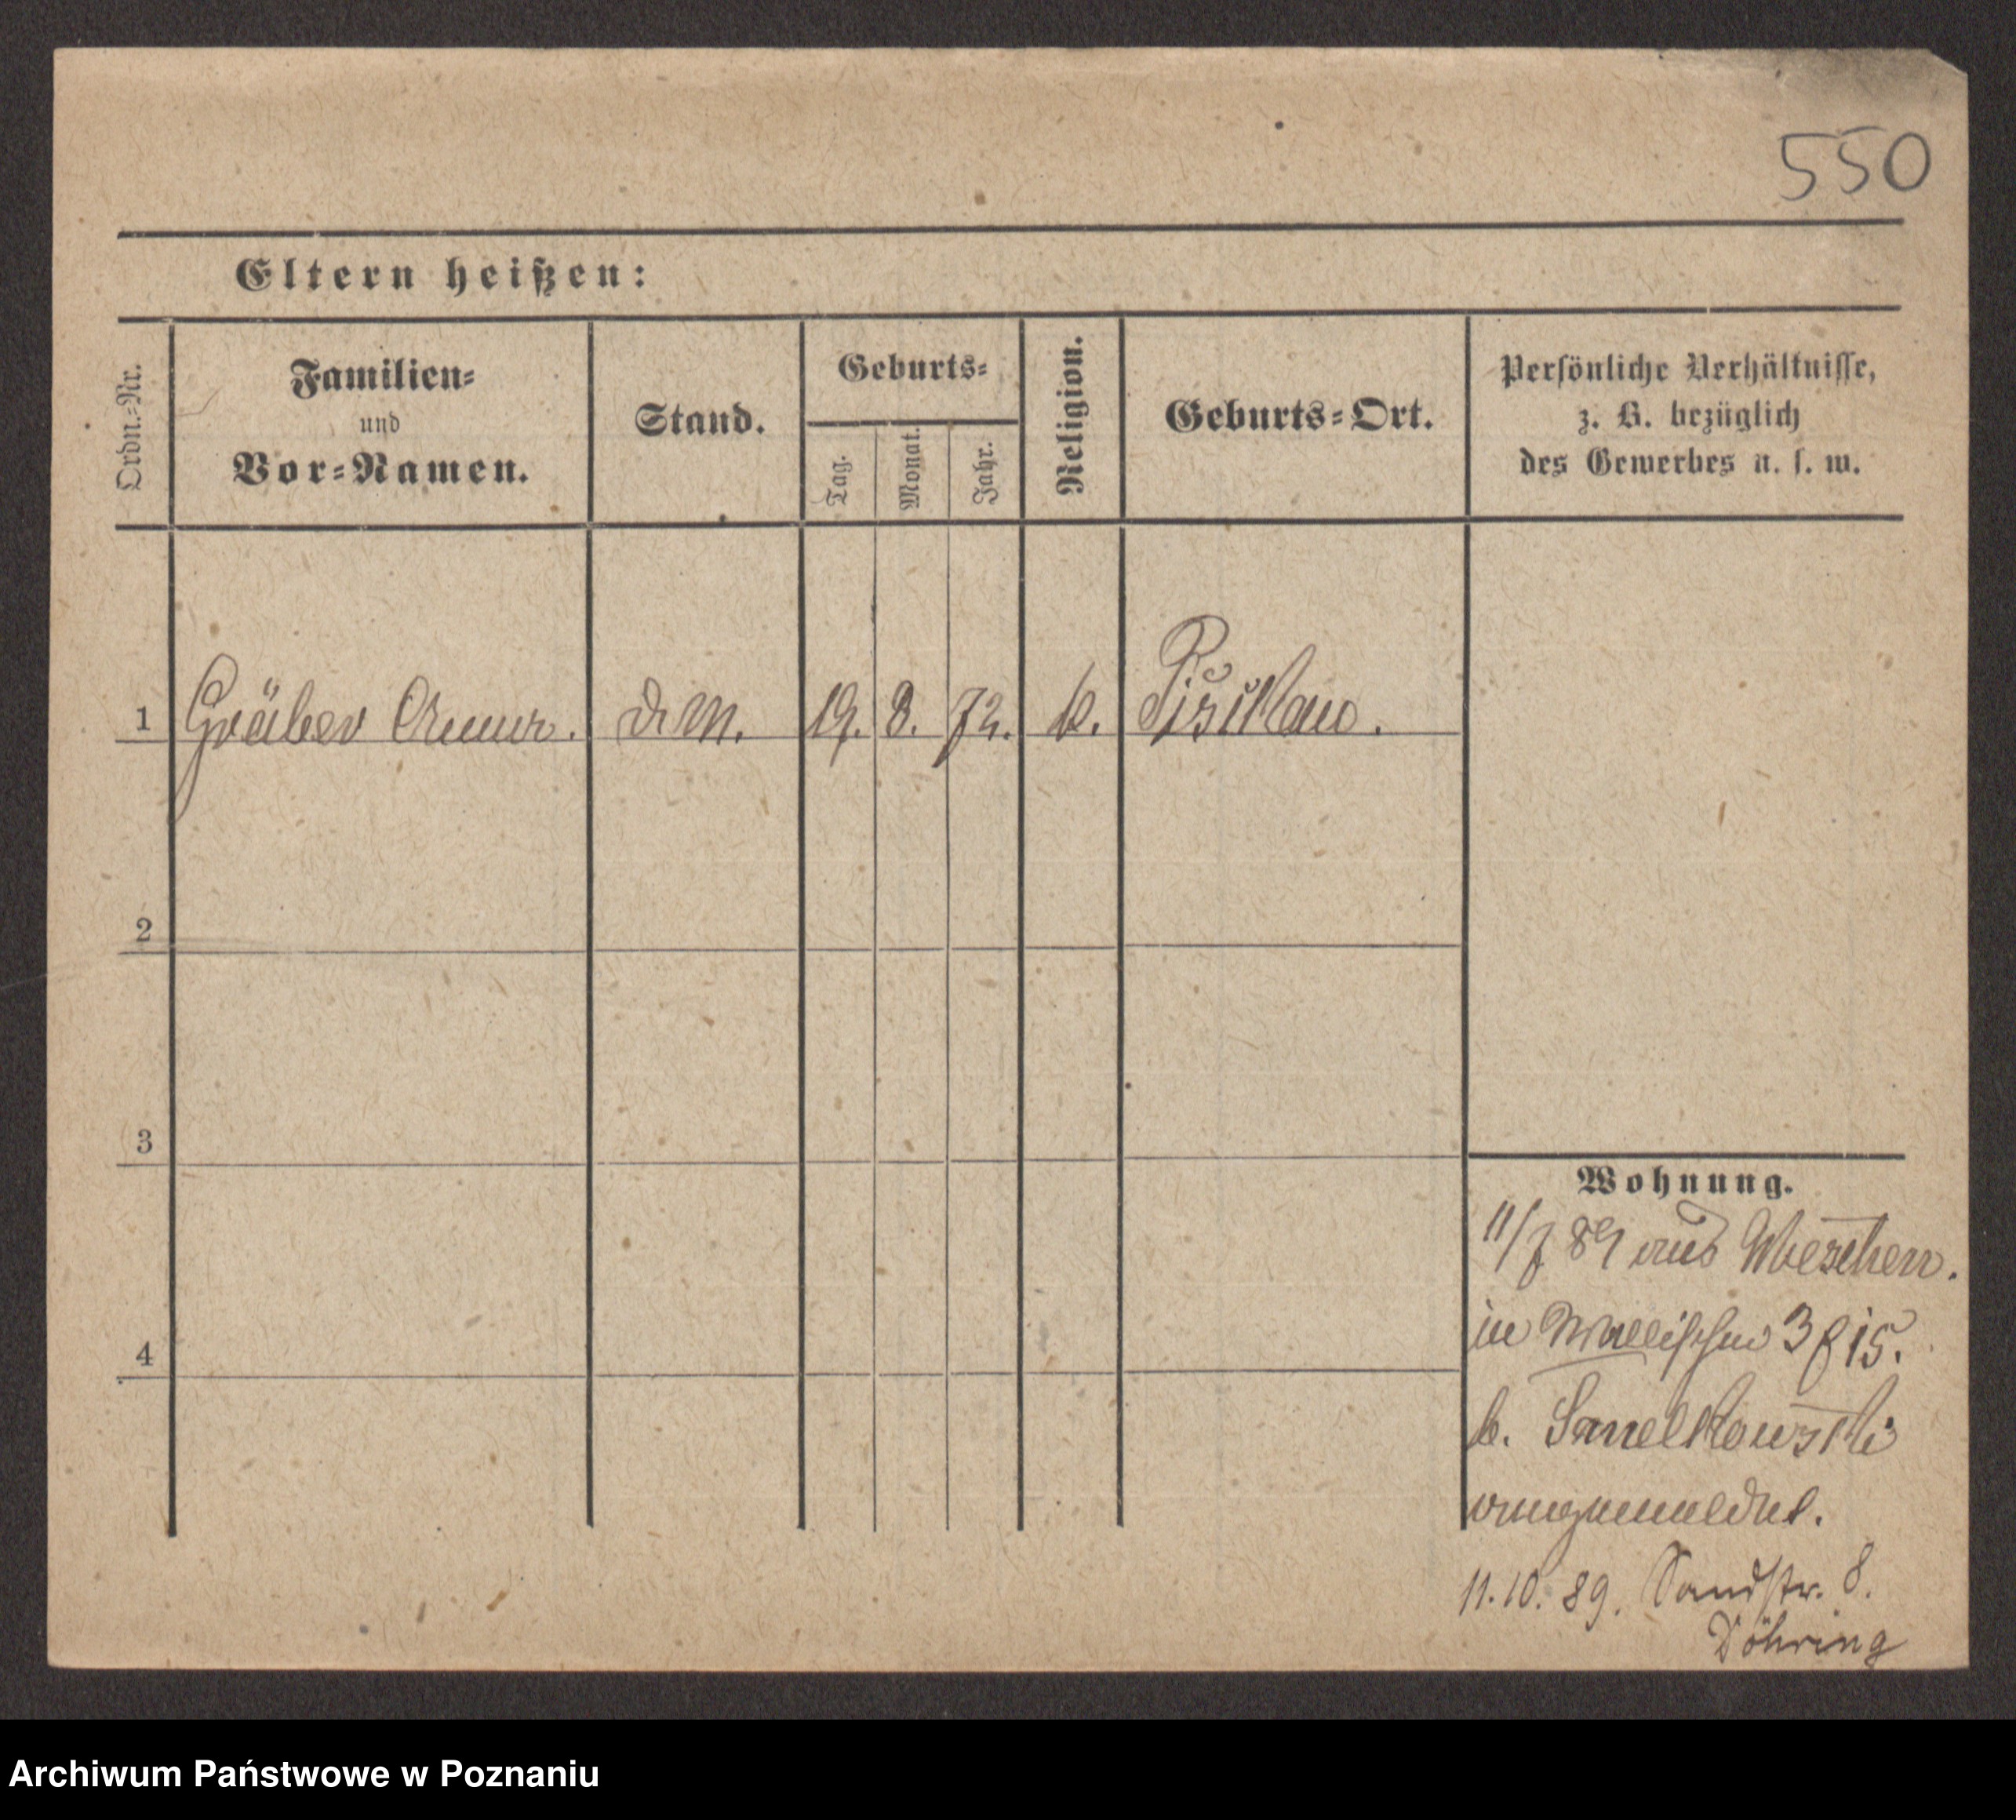 550
Eltern heißen:
Ordn.-Nr.
Familien-
und
Vor-Namen.
Stand.
Geburts-
Tag.
Monat.
Jahr.
Religion.
Geburts-Ort.
Persönliche Verhältnisse,
z. B. bezüglich
des Gewerbes u. s. w.
1 Gräber Anna. d. M. 19. 8. 72. k.
2
3
4
Wohnung.
11/7 89 aus Wreschen.
in Wallischei 3 f 15.
b.
angemeldet.
11.10.89. Sandstr. 8.
Döhring
Archiwum Państwowe w Poznaniu